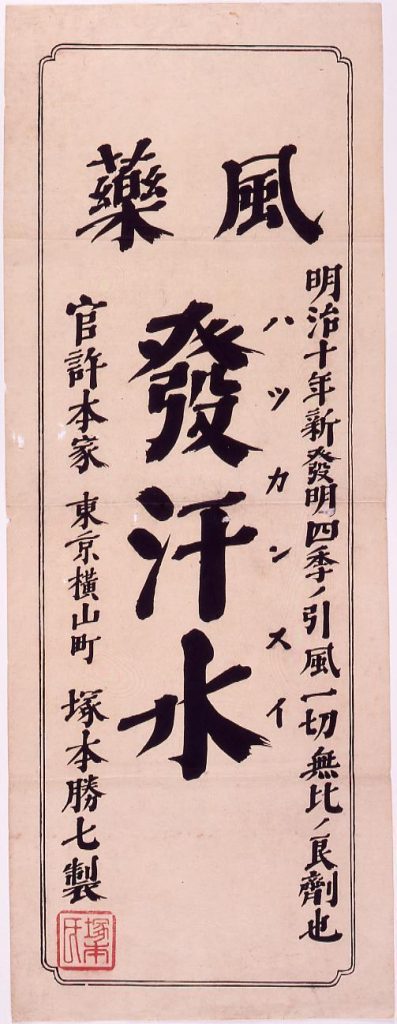 風藥
明治十年新發明四季ノ引風一切無比ノ良劑也
ハツカンスイ
發汗水
官許本家 東京橫山町 塚本勝七製
塚本氏